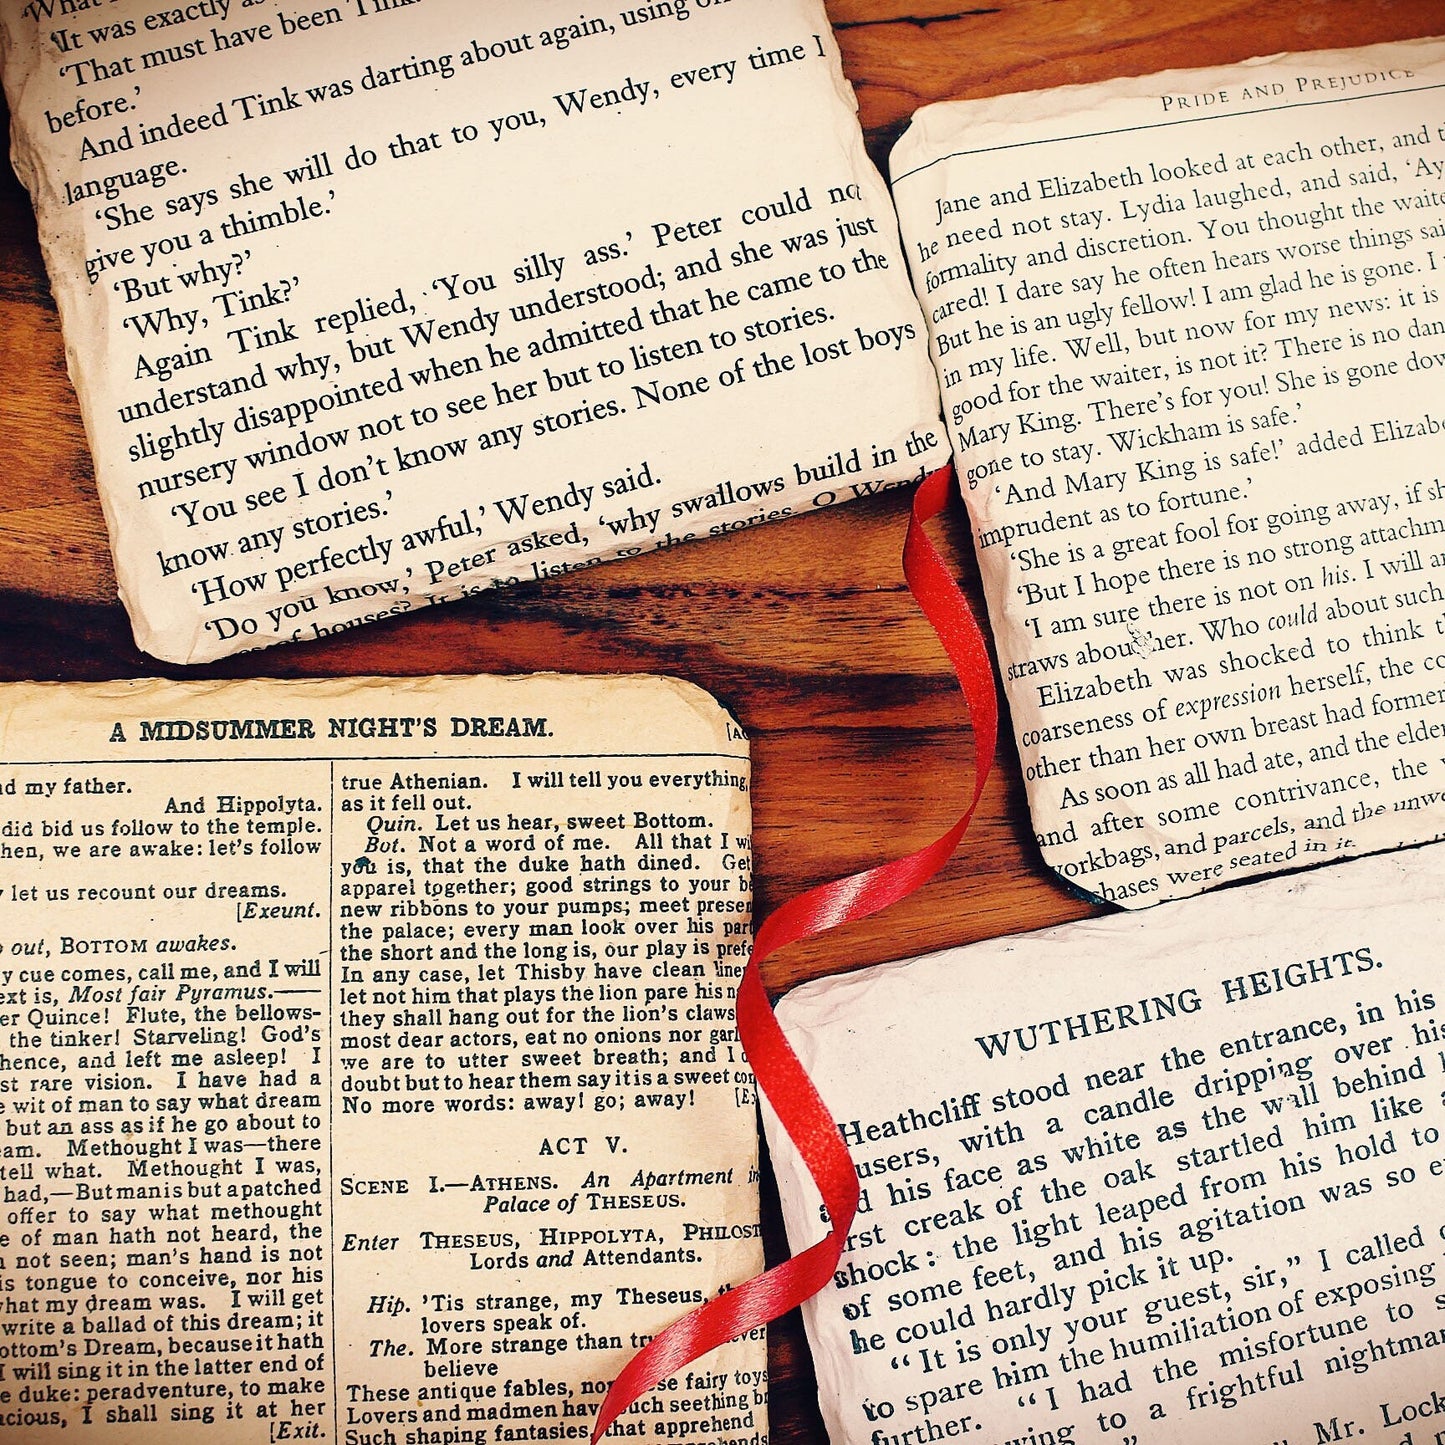 'What
'It was exactly as
'That must have been Tink
before.'
And indeed Tink was darting about again, using
language.
'She says she will do that to you, Wendy, every time I
give you a thimble.'
'But why?'
'Why, Tink?'
Again Tink replied, 'You silly ass.' Peter could not
understand why, but Wendy understood; and she was just
slightly disappointed when he admitted that he came to the
nursery window not to see her but to listen to stories.
'You see I don't know any stories. None of the lost boys
know any stories.'
'How perfectly awful,' Wendy said.
'Do you know,' Peter asked, 'why swallows build in the
of houses? It is to listen to the stories. O Wendy
PRIDE AND PREJUDICE
Jane and Elizabeth looked at each other, and
he need not stay. Lydia laughed, and said, 'Ay
formality and discretion. You thought the
cared! I dare say he often hears worse things
But he is an ugly fellow! I am glad he is gone. I
in my life. Well, but now for my news: it is
good for the waiter, is not it? There is no
Mary King. There's for you! She is gone
gone to stay. Wickham is safe.'
'And Mary King is safe!' added
imprudent as to fortune.'
'She is a great fool for going away, if
'But I hope there is no strong
'I am sure there is not on his. I will
straws about her. Who could about such
Elizabeth was shocked to think
coarseness of expression herself, the
other than her own breast had
As soon as all had ate, and the
and after some contrivance, the
workbags, and parcels, and the
were seated in it.
A MIDSUMMER NIGHT'S DREAM.
my father.
And Hippolyta.
did bid us follow to the temple.
we are awake: let's follow
let us recount our dreams.
[Exeunt.
out, BOTTOM awakes.
cue comes, call me, and I will
is, Most fair Pyramus.—
Quince! Flute, the bellows-
the tinker! Starveling! God's
hence, and left me asleep! I
rare vision. I have had a
wit of man to say what dream
but an ass as if he go about to
Methought I was—there
tell what. Methought I was,
had,—But man is but a patched
offer to say what methought
of man hath not heard, the
not seen; man's hand is not
tongue to conceive, nor his
what my dream was. I will get
write a ballad of this dream; it
Bottom's Dream, because it hath
I will sing it in the latter end of
duke: peradventure, to make
I shall sing it at her
[Exit.
true Athenian. I will tell you everything,
as it fell out.
Quin. Let us hear, sweet Bottom.
Bot. Not a word of me. All that I
you is, that the duke hath dined. Get
apparel together; good strings to your
new ribbons to your pumps; meet
the palace; every man look over his
the short and the long is, our play is
In any case, let Thisby have clean linen
let not him that plays the lion pare his
they shall hang out for the lion's claws
most dear actors, eat no onions nor
we are to utter sweet breath; and I
doubt but to hear them say it is a sweet
No more words: away! go; away!
ACT V.
SCENE I.—ATHENS. An Apartment in
Palace of THESEUS.
Enter THESEUS, HIPPOLYTA,
Lords and Attendants.
Hip. 'Tis strange, my Theseus,
lovers speak of.
The. More strange than
believe
These antique fables, nor these fairy toys
Lovers and madmen have such seething
Such shaping fantasies, that apprehend
WUTHERING HEIGHTS.
Heathcliff stood near the entrance, in his
with a candle dripping over his
and his face as white as the wall behind
first creak of the oak startled him like
shock: the light leaped from his hold to
of some feet, and his agitation was so
he could hardly pick it up.
"It is only your guest, sir," I called
to spare him the humiliation of exposing
further. "I had the misfortune to
to a frightful
Mr.